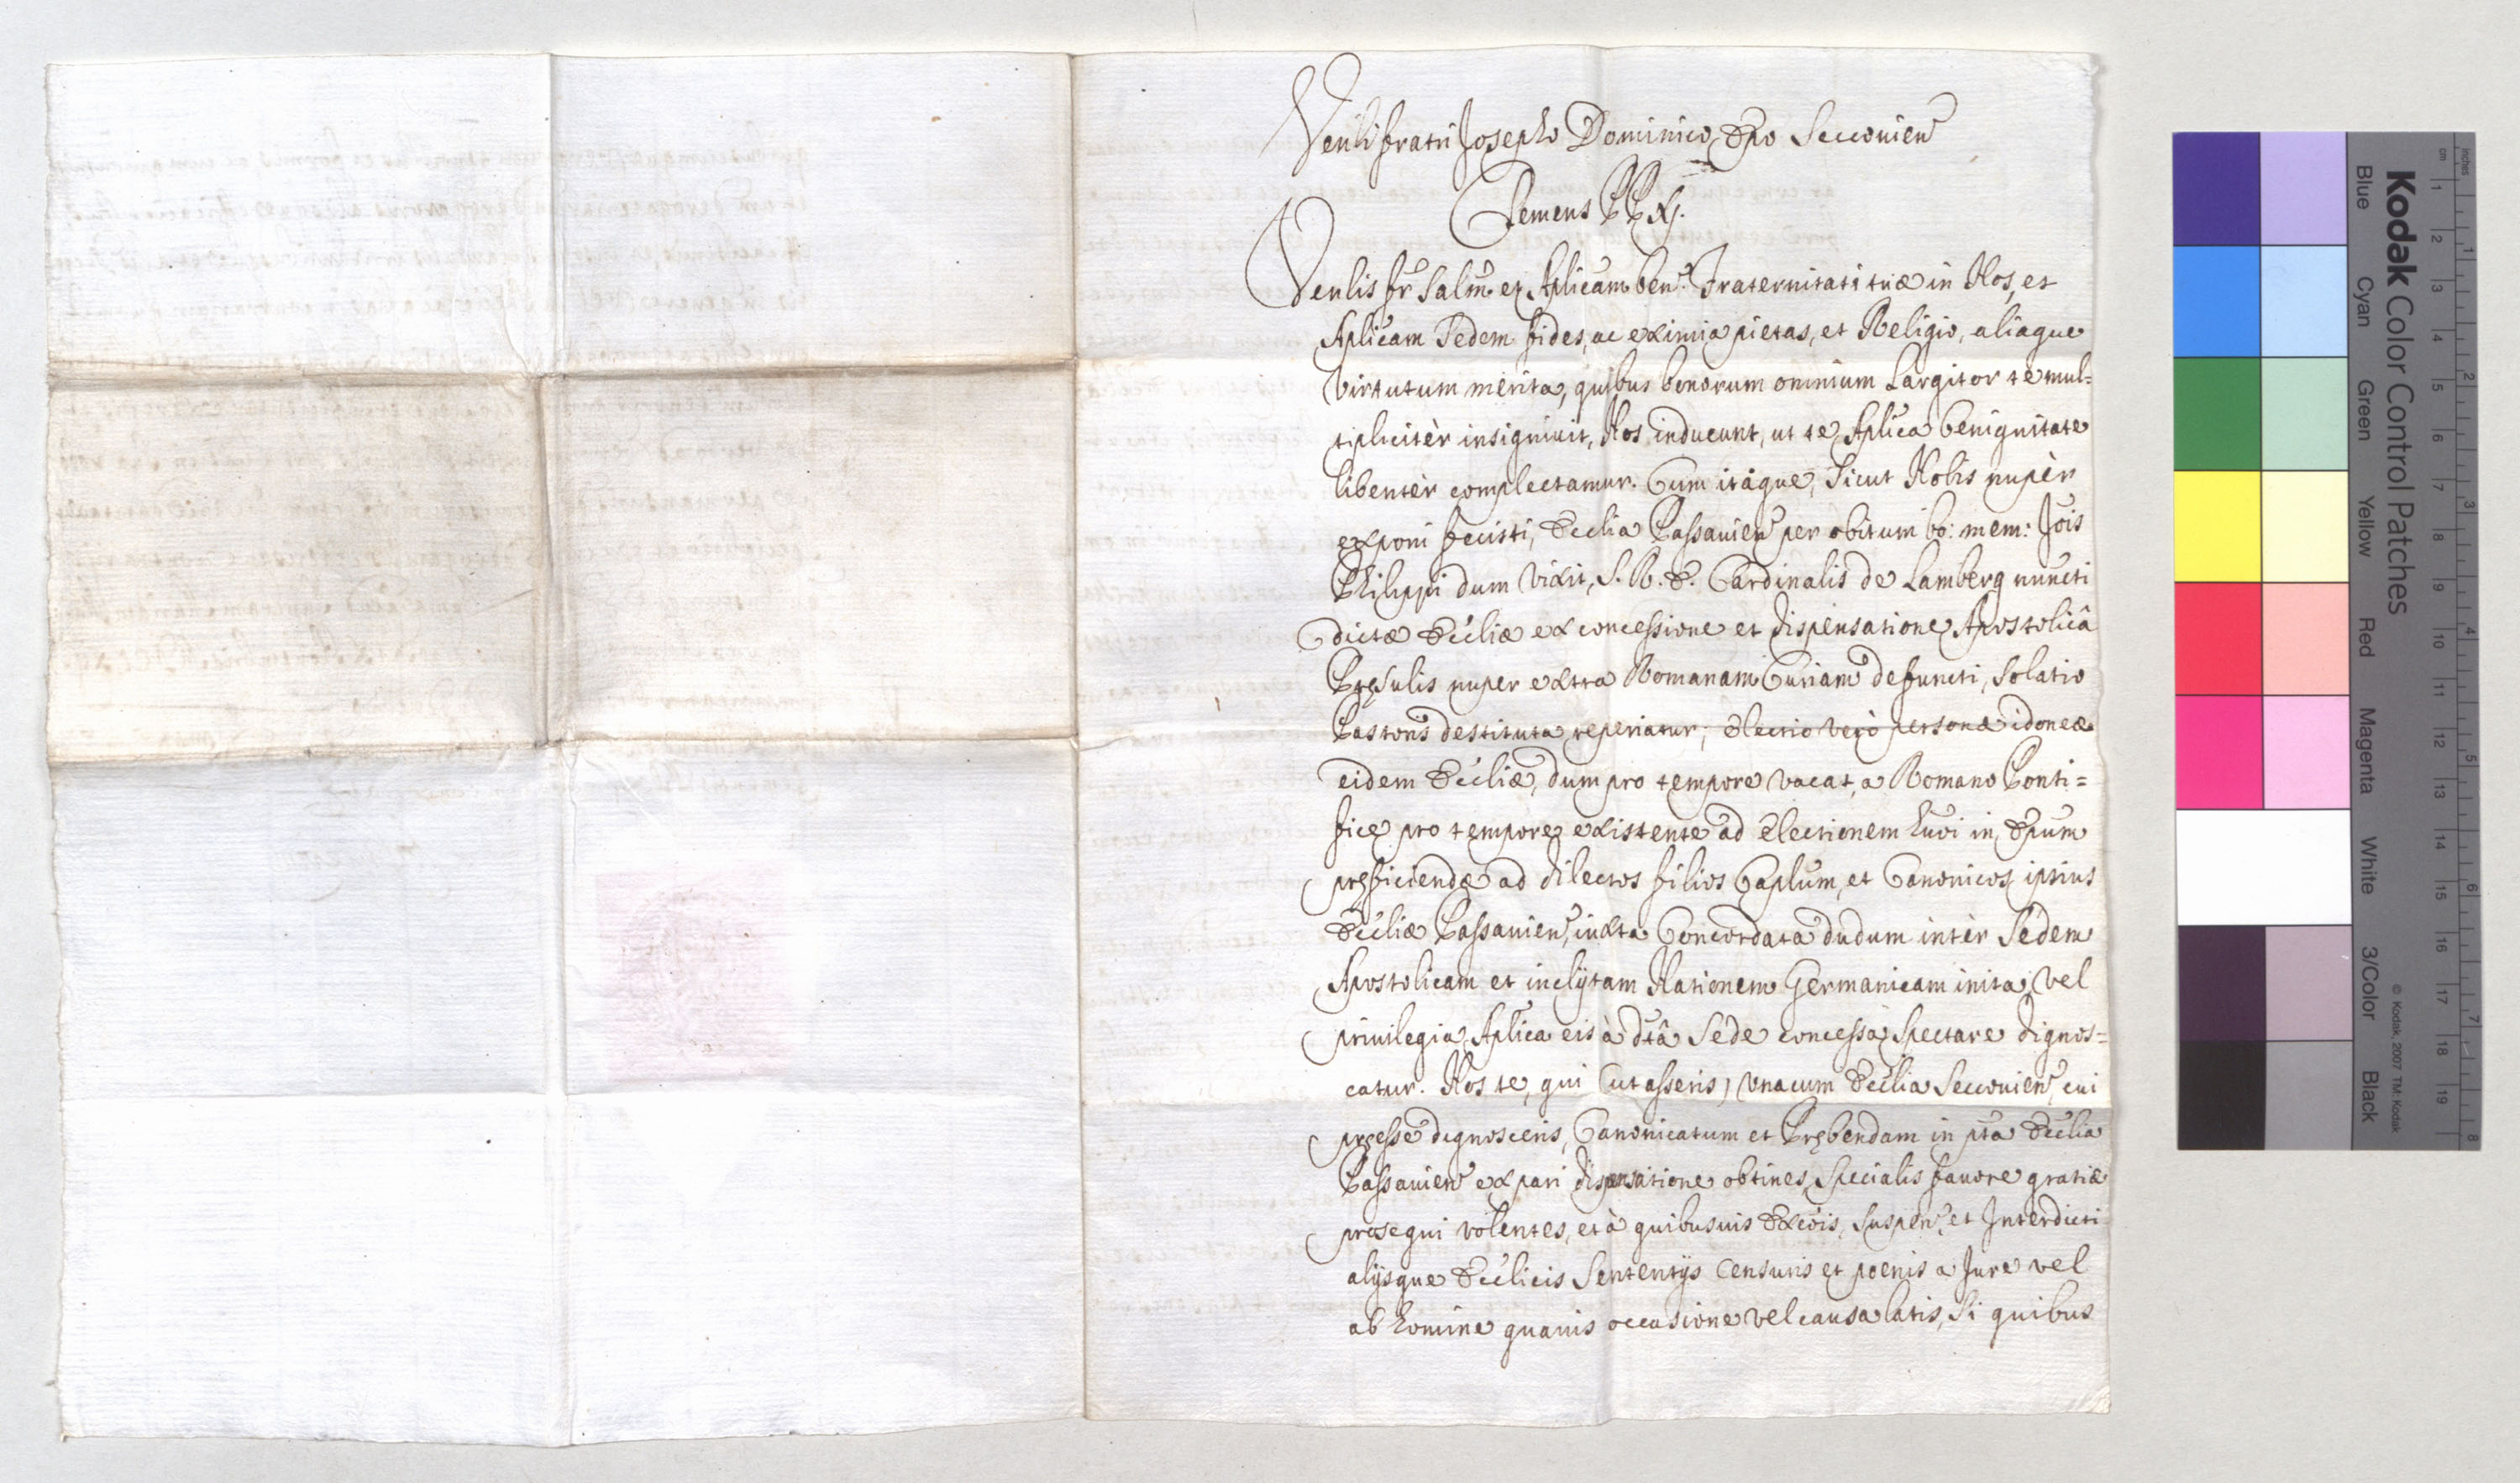 Venli fratri Josepho Dominico Epo Seccovien
Clemens PP. XI.
Venlis fr̃ Salm̃ et Aplicam ben. Fraternitati tuæ in Nos, et
Aplicam Sedem fides, ac eximia pietas, et Religio, aliaque
virtutum merita, quibus bonorum omnium Largitor te mul=
tiplicitèr insigniuit, Nos inducunt, ut te Aplica benignitate
libentèr complectamur. Cum itaque, sicut Nobis nupèr
exponi fecisti, Ecclia Passauien per obitum bo: mem: Jois
Philippi dum vixit, S. R. E. Cardinalis de Lamberg nuncti
dictæ Eccliæ ex concessione et dispensatione Apostolicâ
Pręsulis nuper extra Romanam Curiam defuncti, solatio
Pastoris destituta reperiatur; Electio verò personæ idoneæ
eidem Eccliæ, dum pro tempore vacat, a Romano Ponti=
fice pro tempore existente ad Electionem huoi in Epum
pręficiendę ad dilectos filios Caplum, et Canonicos ipsius
Eccliæ Passauien, iuxta Concordata dudum intèr Sedem
Apostolicam et inclÿtam Nationem Germanicam inita, vel
priuilegia Aplica eis à dtâ Sede concessa spectare dignos=
catur. Nos te, qui (ut asseris) vnacum Ecclia Seccouien, cui
pręesse dignosceris, Canonicatum et Prębendam in pta Ecclia
Passauien ex pari dispensatione obtines, specialis fauore gratiæ
prosequi volentes, et à quibusuis Excõis, suspen, et Interdicti
alijsque Ecclicis Sententijs Censuris et pœnis a Jure vel
ab homine quauis occasione vel causa latis, si quibus
Kodak Color Control Patches
Blue Cyan Green Yellow Red Magenta White 3/Color Black
© Kodak, 2007 TM: Kodak
inches 1 2 3 4 5 6 7 8
cm 1 2 3 4 5 6 7 8 9 10 11 12 13 14 15 16 17 18 19